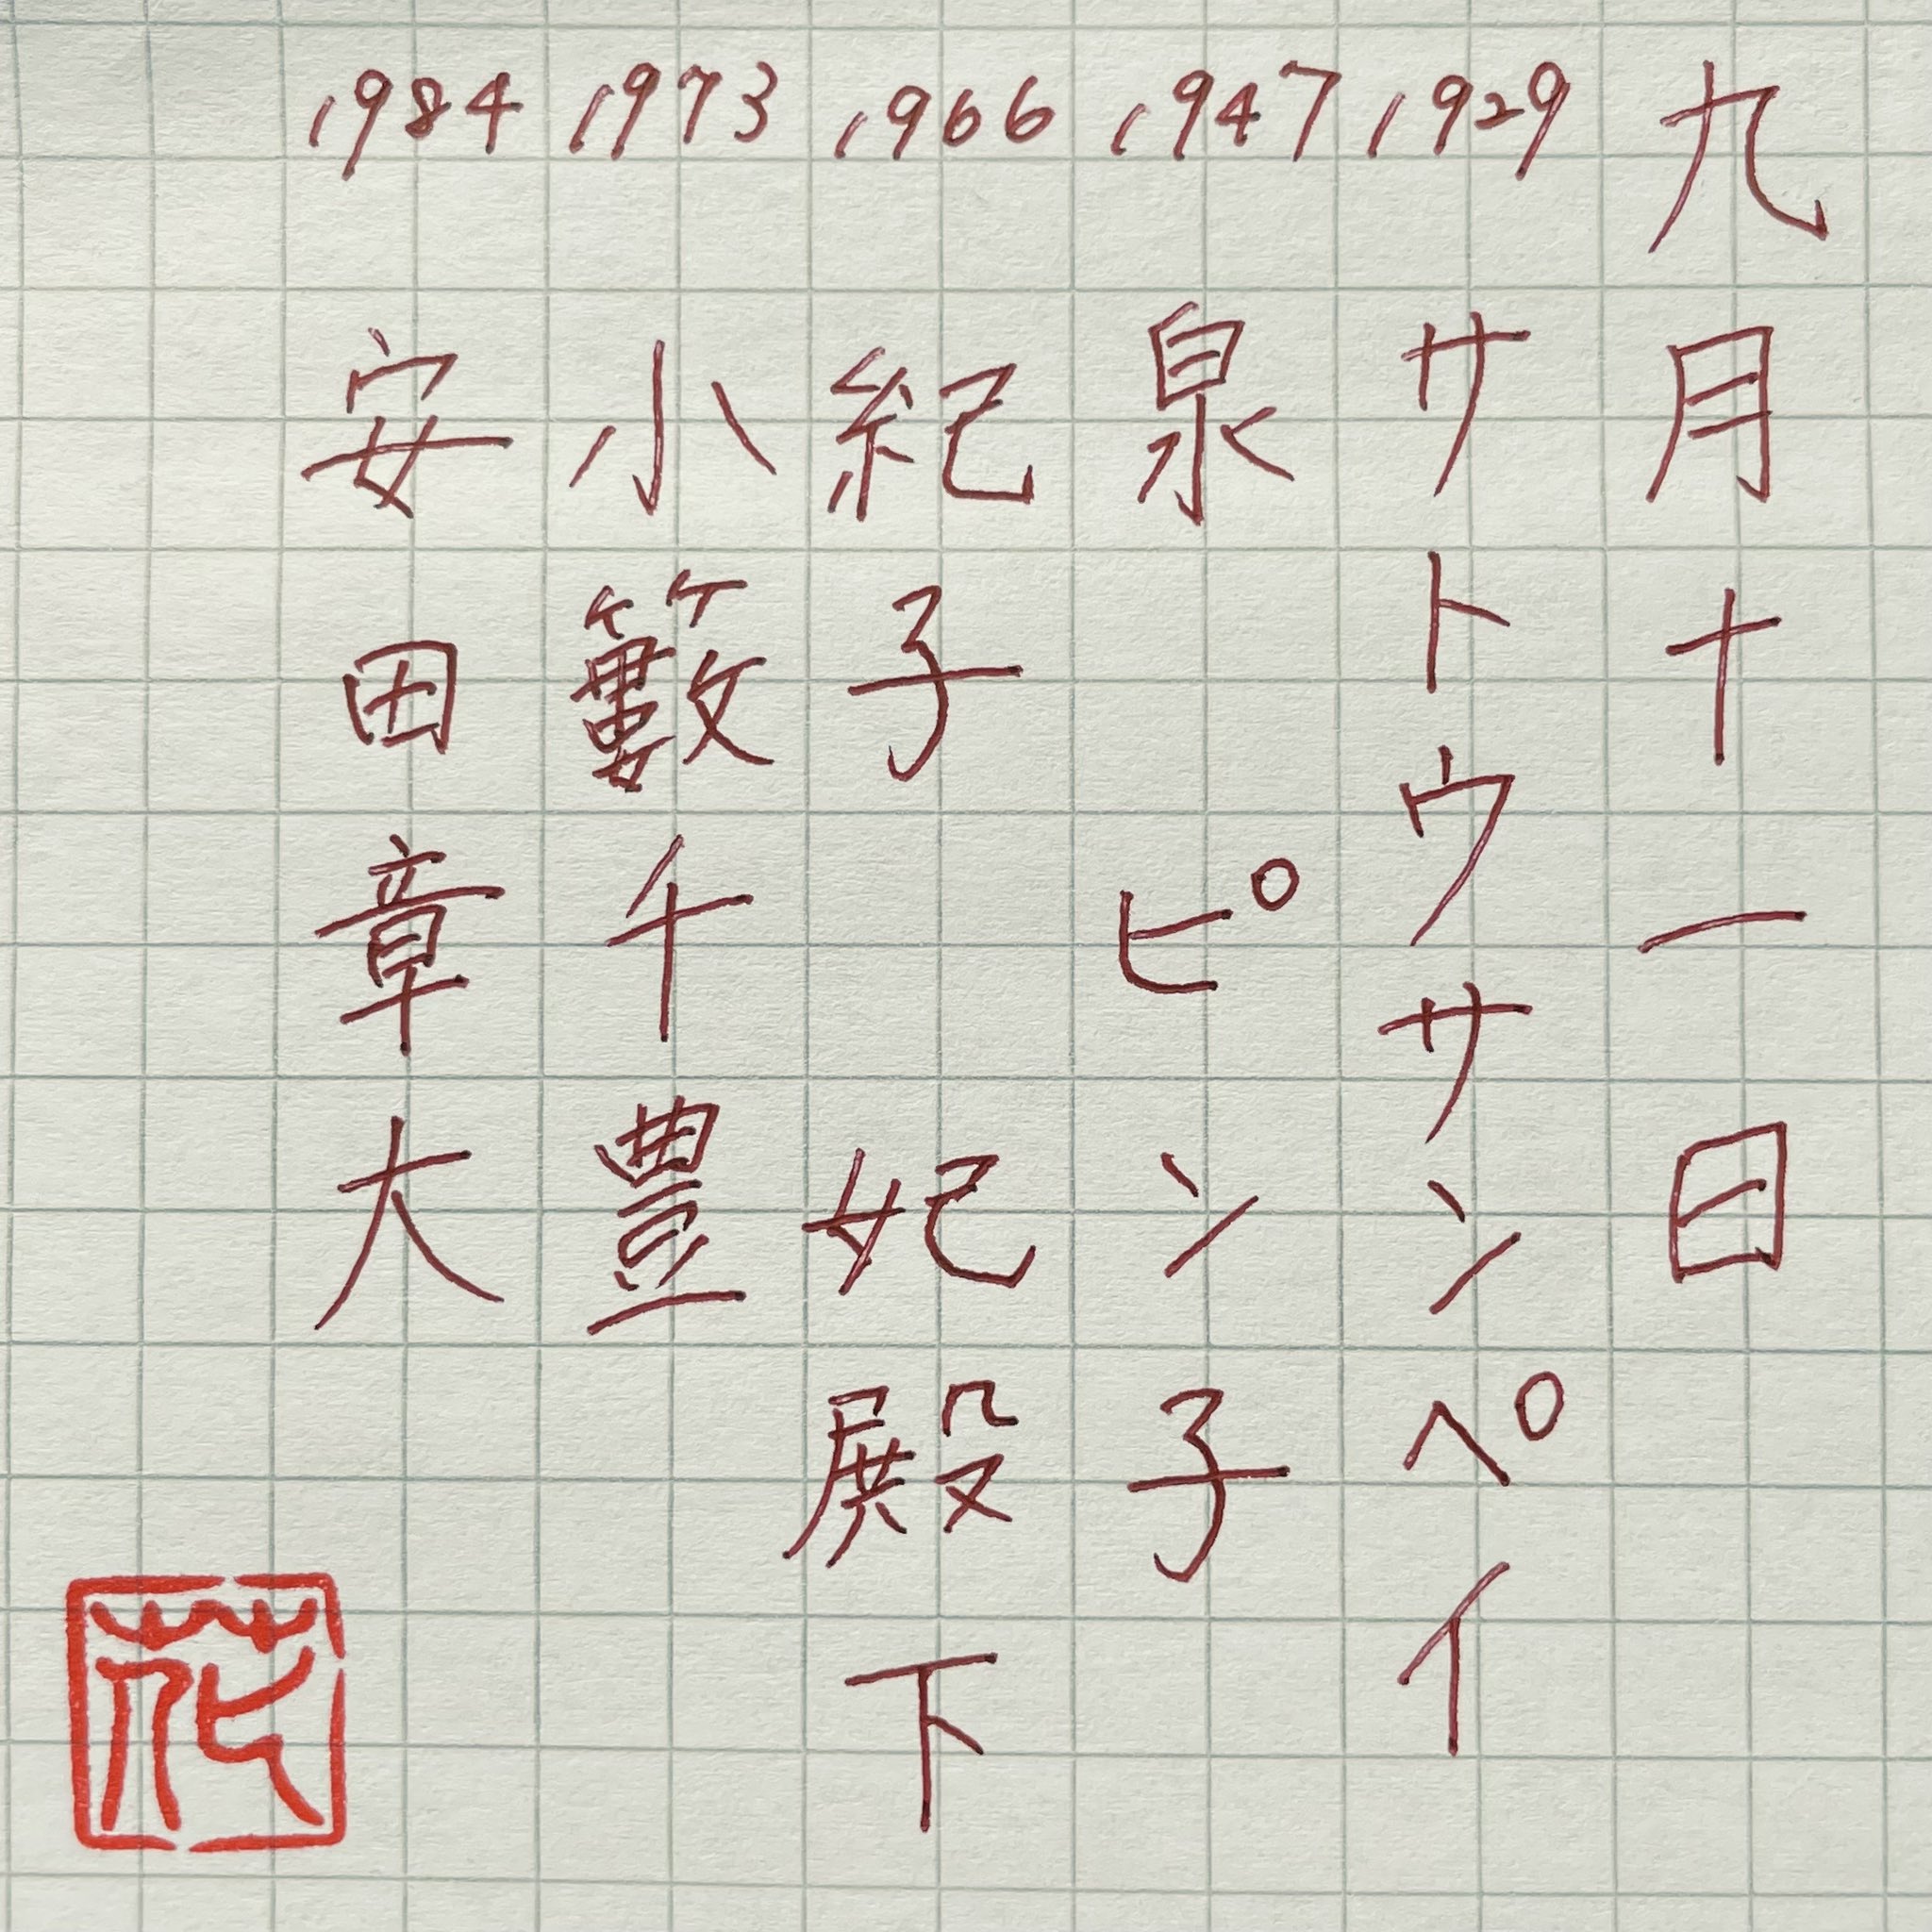 九月十一日
1929 サトウサンペイ
1947 泉 ピン子
1966 紀子 妃殿下
1973 小籔千豊
1984 安田章大
花